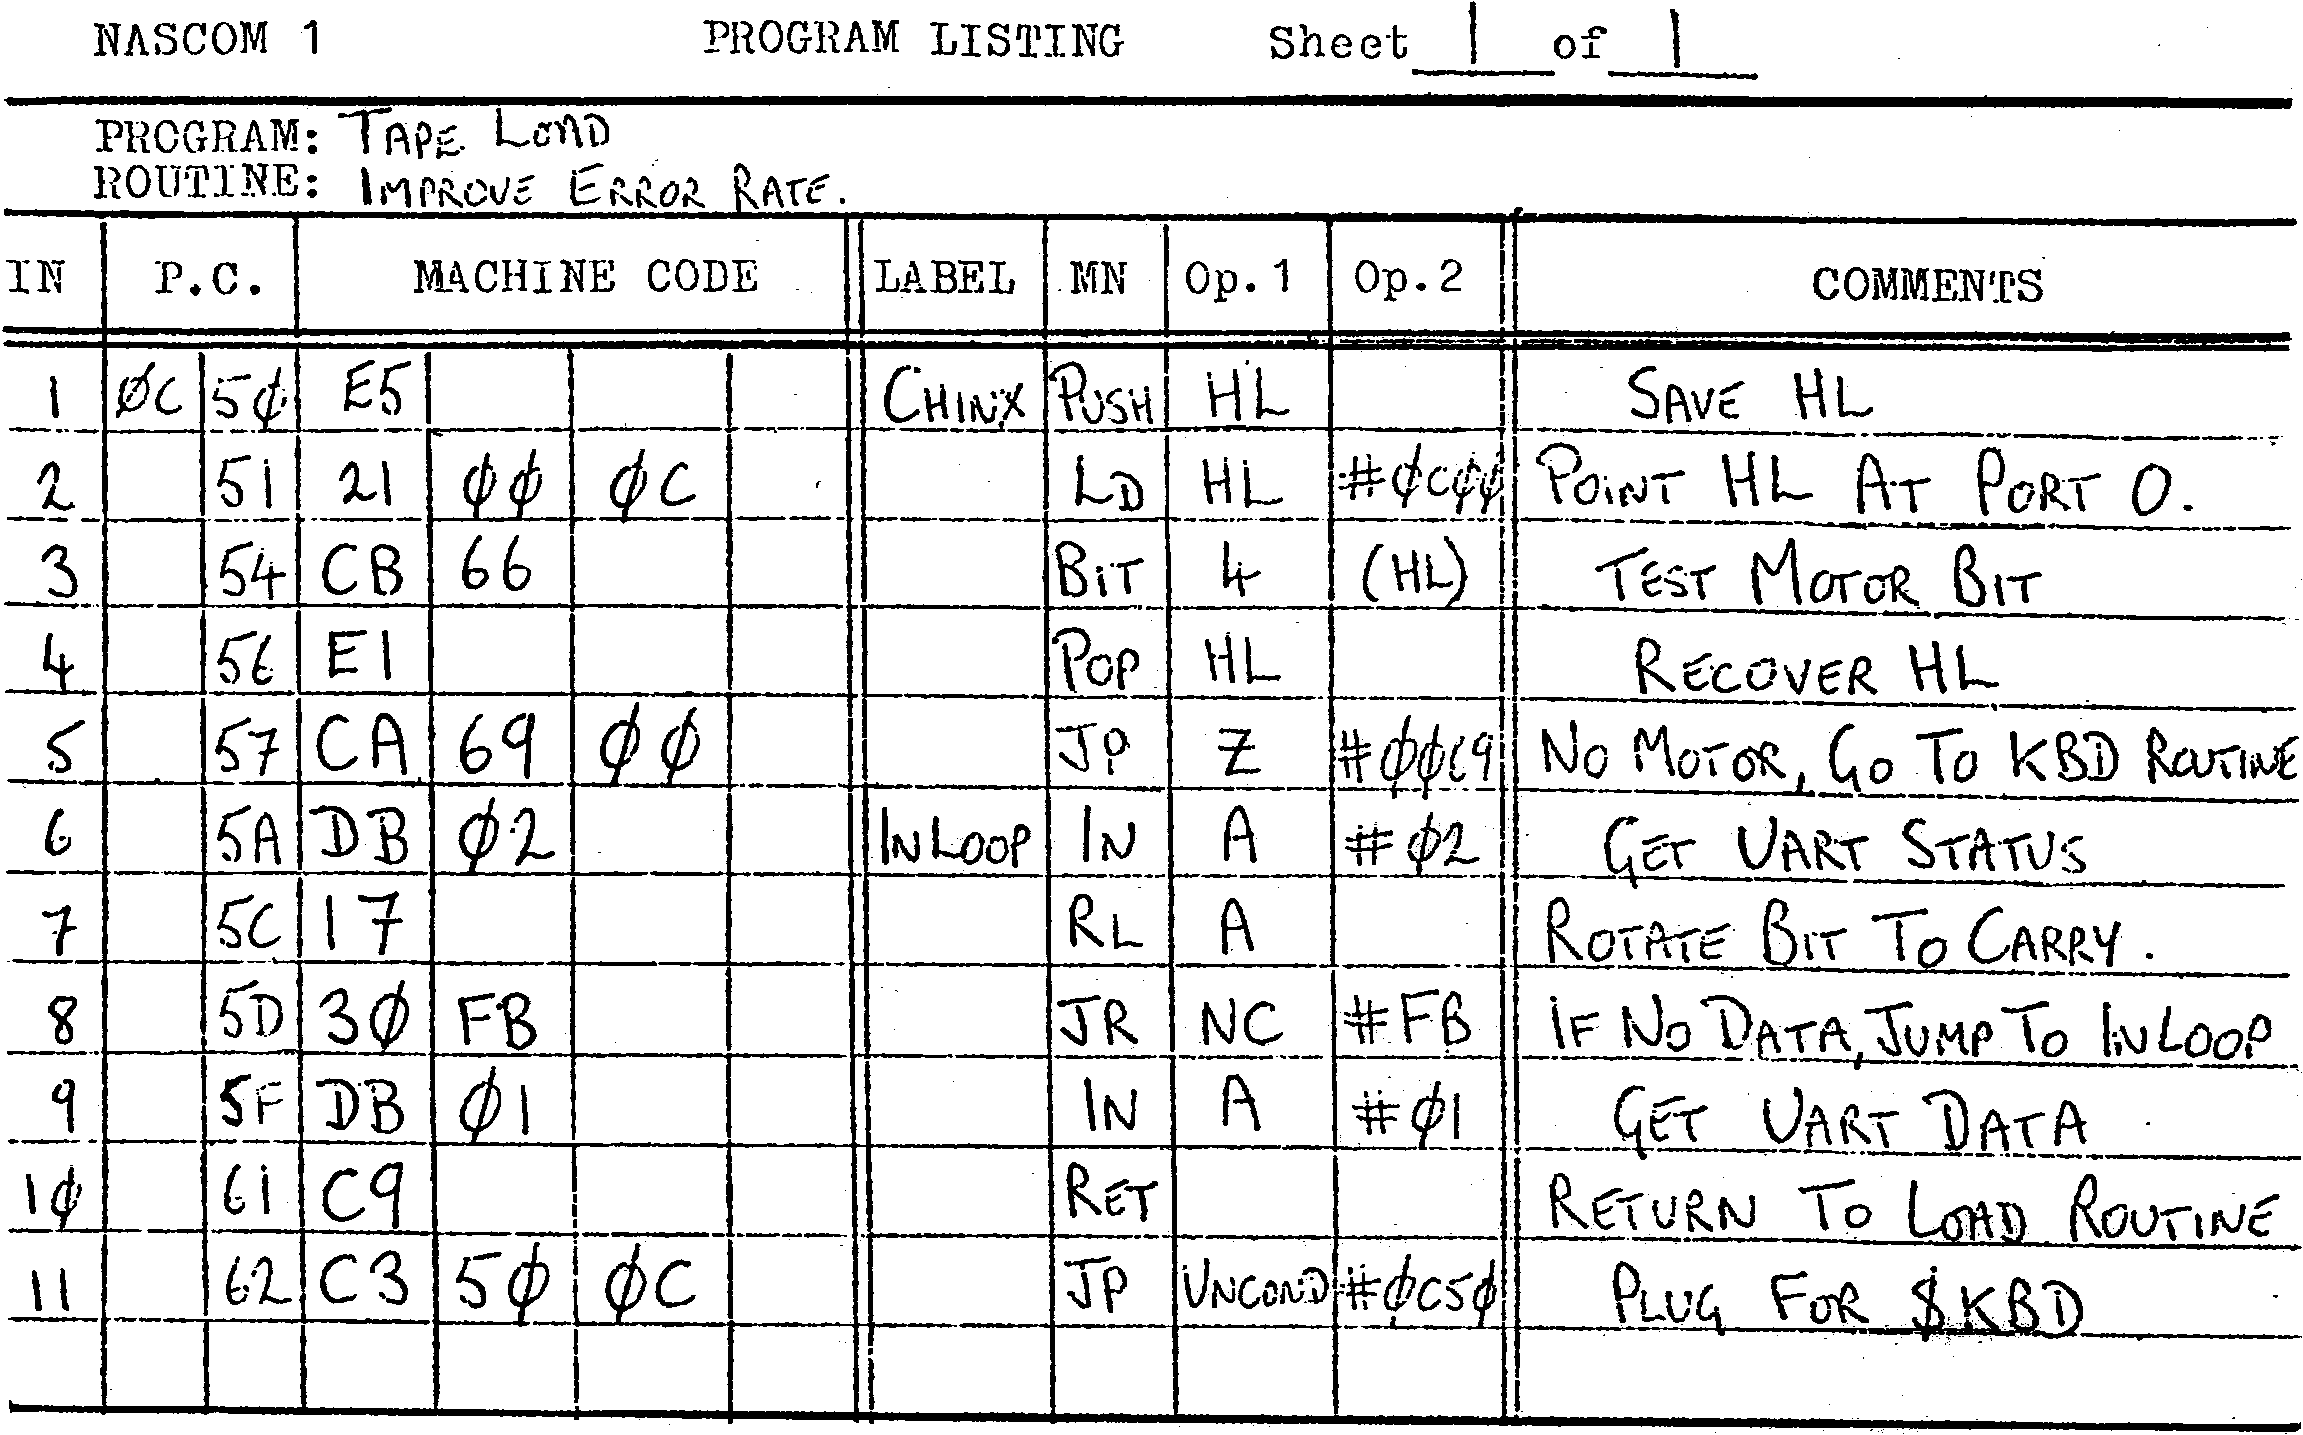 NASCOM 1 PROGRAM LISTING Sheet 1 of 1
PROGRAM: TAPE LOAD
ROUTINE: IMPROVE ERROR RATE.
IN P.C. MACHINE CODE LABEL MN Op.1 Op.2 COMMENTS
1 ØC 5Ø E5 CHINX PUSH HL SAVE HL
2 51 21 ØØ ØC LD HL #ØCØØ POINT HL AT PORT O.
3 54 CB 66 BIT 4 (HL) TEST MOTOR BIT
4 56 E1 POP HL RECOVER HL
5 57 CA 69 ØØ JP Z #ØØ69 NO MOTOR, GO TO KBD ROUTINE
6 5A DB Ø2 INLOOP IN A #Ø2 GET UART STATUS
7 5C 17 RL A ROTATE BIT TO CARRY.
8 5D 3Ø FB JR NC #FB IF NO DATA, JUMP TO INLOOP
9 5F DB Ø1 IN A #Ø1 GET UART DATA
1Ø 61 C9 RET RETURN TO LOAD ROUTINE
11 62 C3 5Ø ØC JP UNCOND #ØC5Ø PLUG FOR $KBD